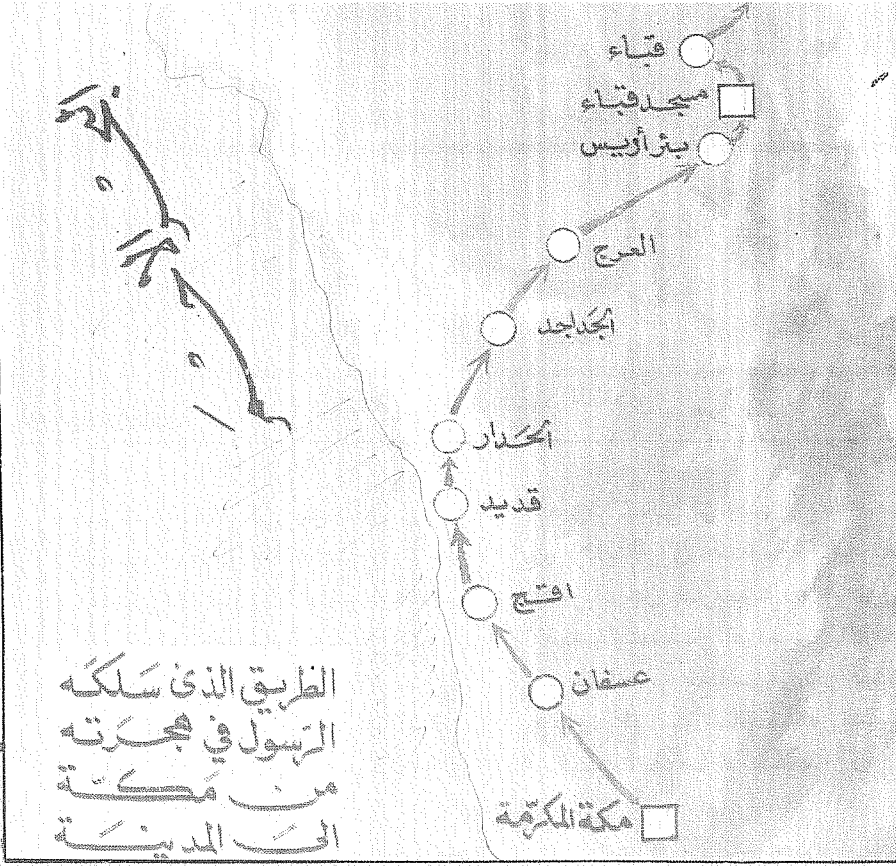 قباء
مسجد قباء
بئر أويس
العرج
الجداجد
الحدار
قديد
افتج
عسفان
مكة المكرمة
البحر الأحمر
الطريق الذي سلكه
الرسول في هجرته
من مكة
الى المدينة